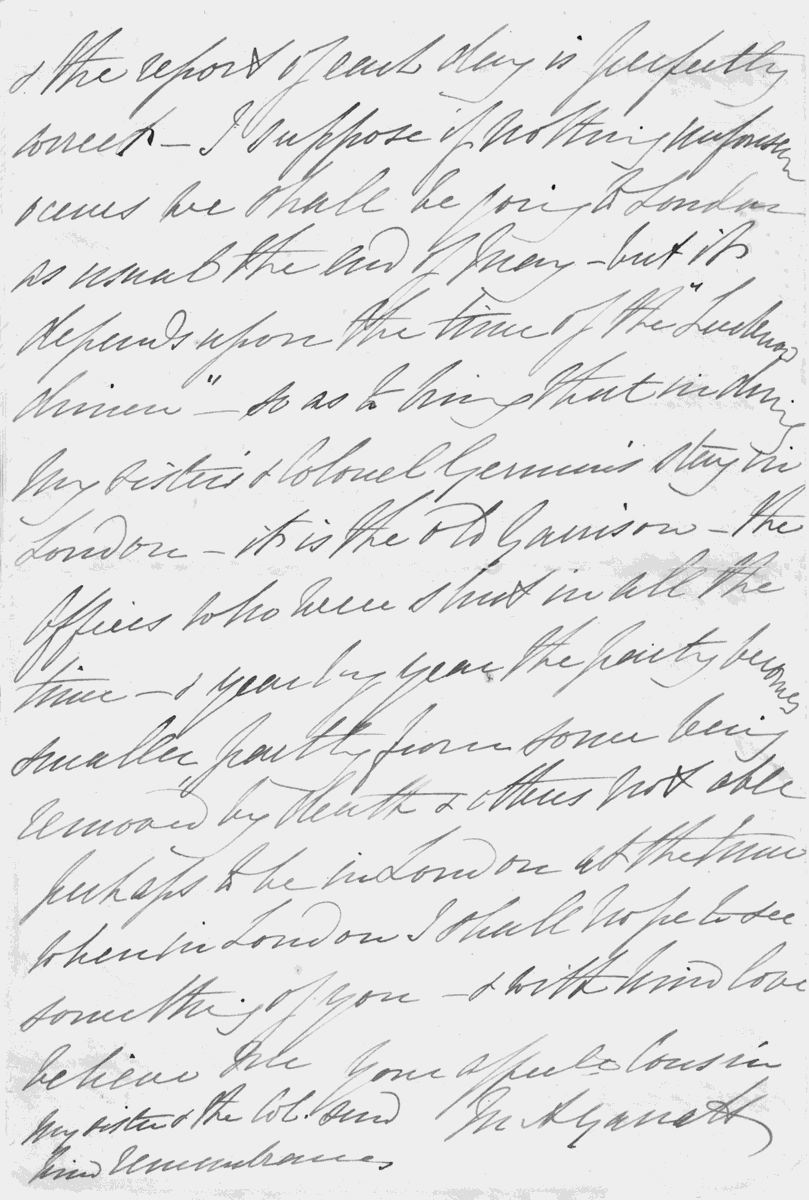 & the report of each day is perfectly
correct – I suppose if nothing unforseen
occurs we shall be going to London
as usual the end of May – but it
depends upon the time of the "Lucknow
dinner" – so as to bring that in during
my sister's & Colonel Germon's stay in
London – it is the old Garrison – the
Officers who were shut in all the
time – & year by year the party becomes
smaller partly from some being
removed by death & others not able
perhaps to be in London at the time
when in London I shall hope to see
something of you – & with kind love
believe me your affecte Cousin
M A Garratt
My sister & the Col. send
kind remembrances